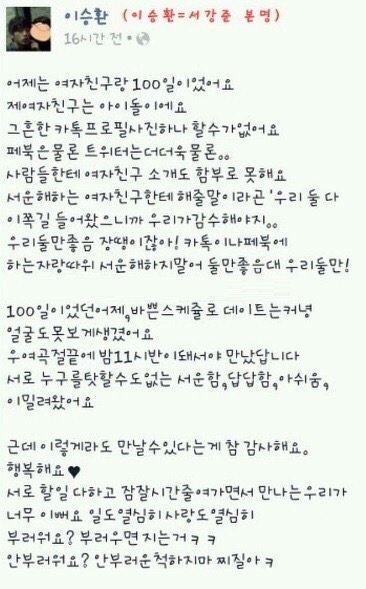 이승환 (이승환=서강준 본명)
16시간 전 ·
어제는 여자친구랑 100일이었어요
제여자친구는 아이돌이에요
그흔한 카톡프로필사진하나 할수가없어요
페북은물론 트위터는더더욱물론..
사람들한테 여자친구 소개도 함부로 못해요
서운해하는 여자친구한테 해줄말이라곤 '우리 둘 다
이쪽길 들어왔으니까 우리가감수해야지..
우리둘만좋음 장땡이잖아! 카톡이나페북에
하는자랑따위 서운해하지말어 둘만좋음대 우리둘만!
100일이었던어제,바쁜스케쥴로 데이트는커녕
얼굴도못보게생겼어요
우여곡절끝에 밤11시반이돼서야 만났답니다
서로 누구를탓할수도없는 서운함,답답함,아쉬움,
이밀려왔어요
근데 이렇게라도 만날수있다는게 참 감사해요.
행복해요♥
서로 할일 다하고 잠잘시간줄여가면서 만나는우리가
너무 이뻐요 일도열심히사랑도열심히
부러워요? 부러우면 지는거ㅋㅋ
안부러워요? 안부러운척하지마 찌질아ㅋ